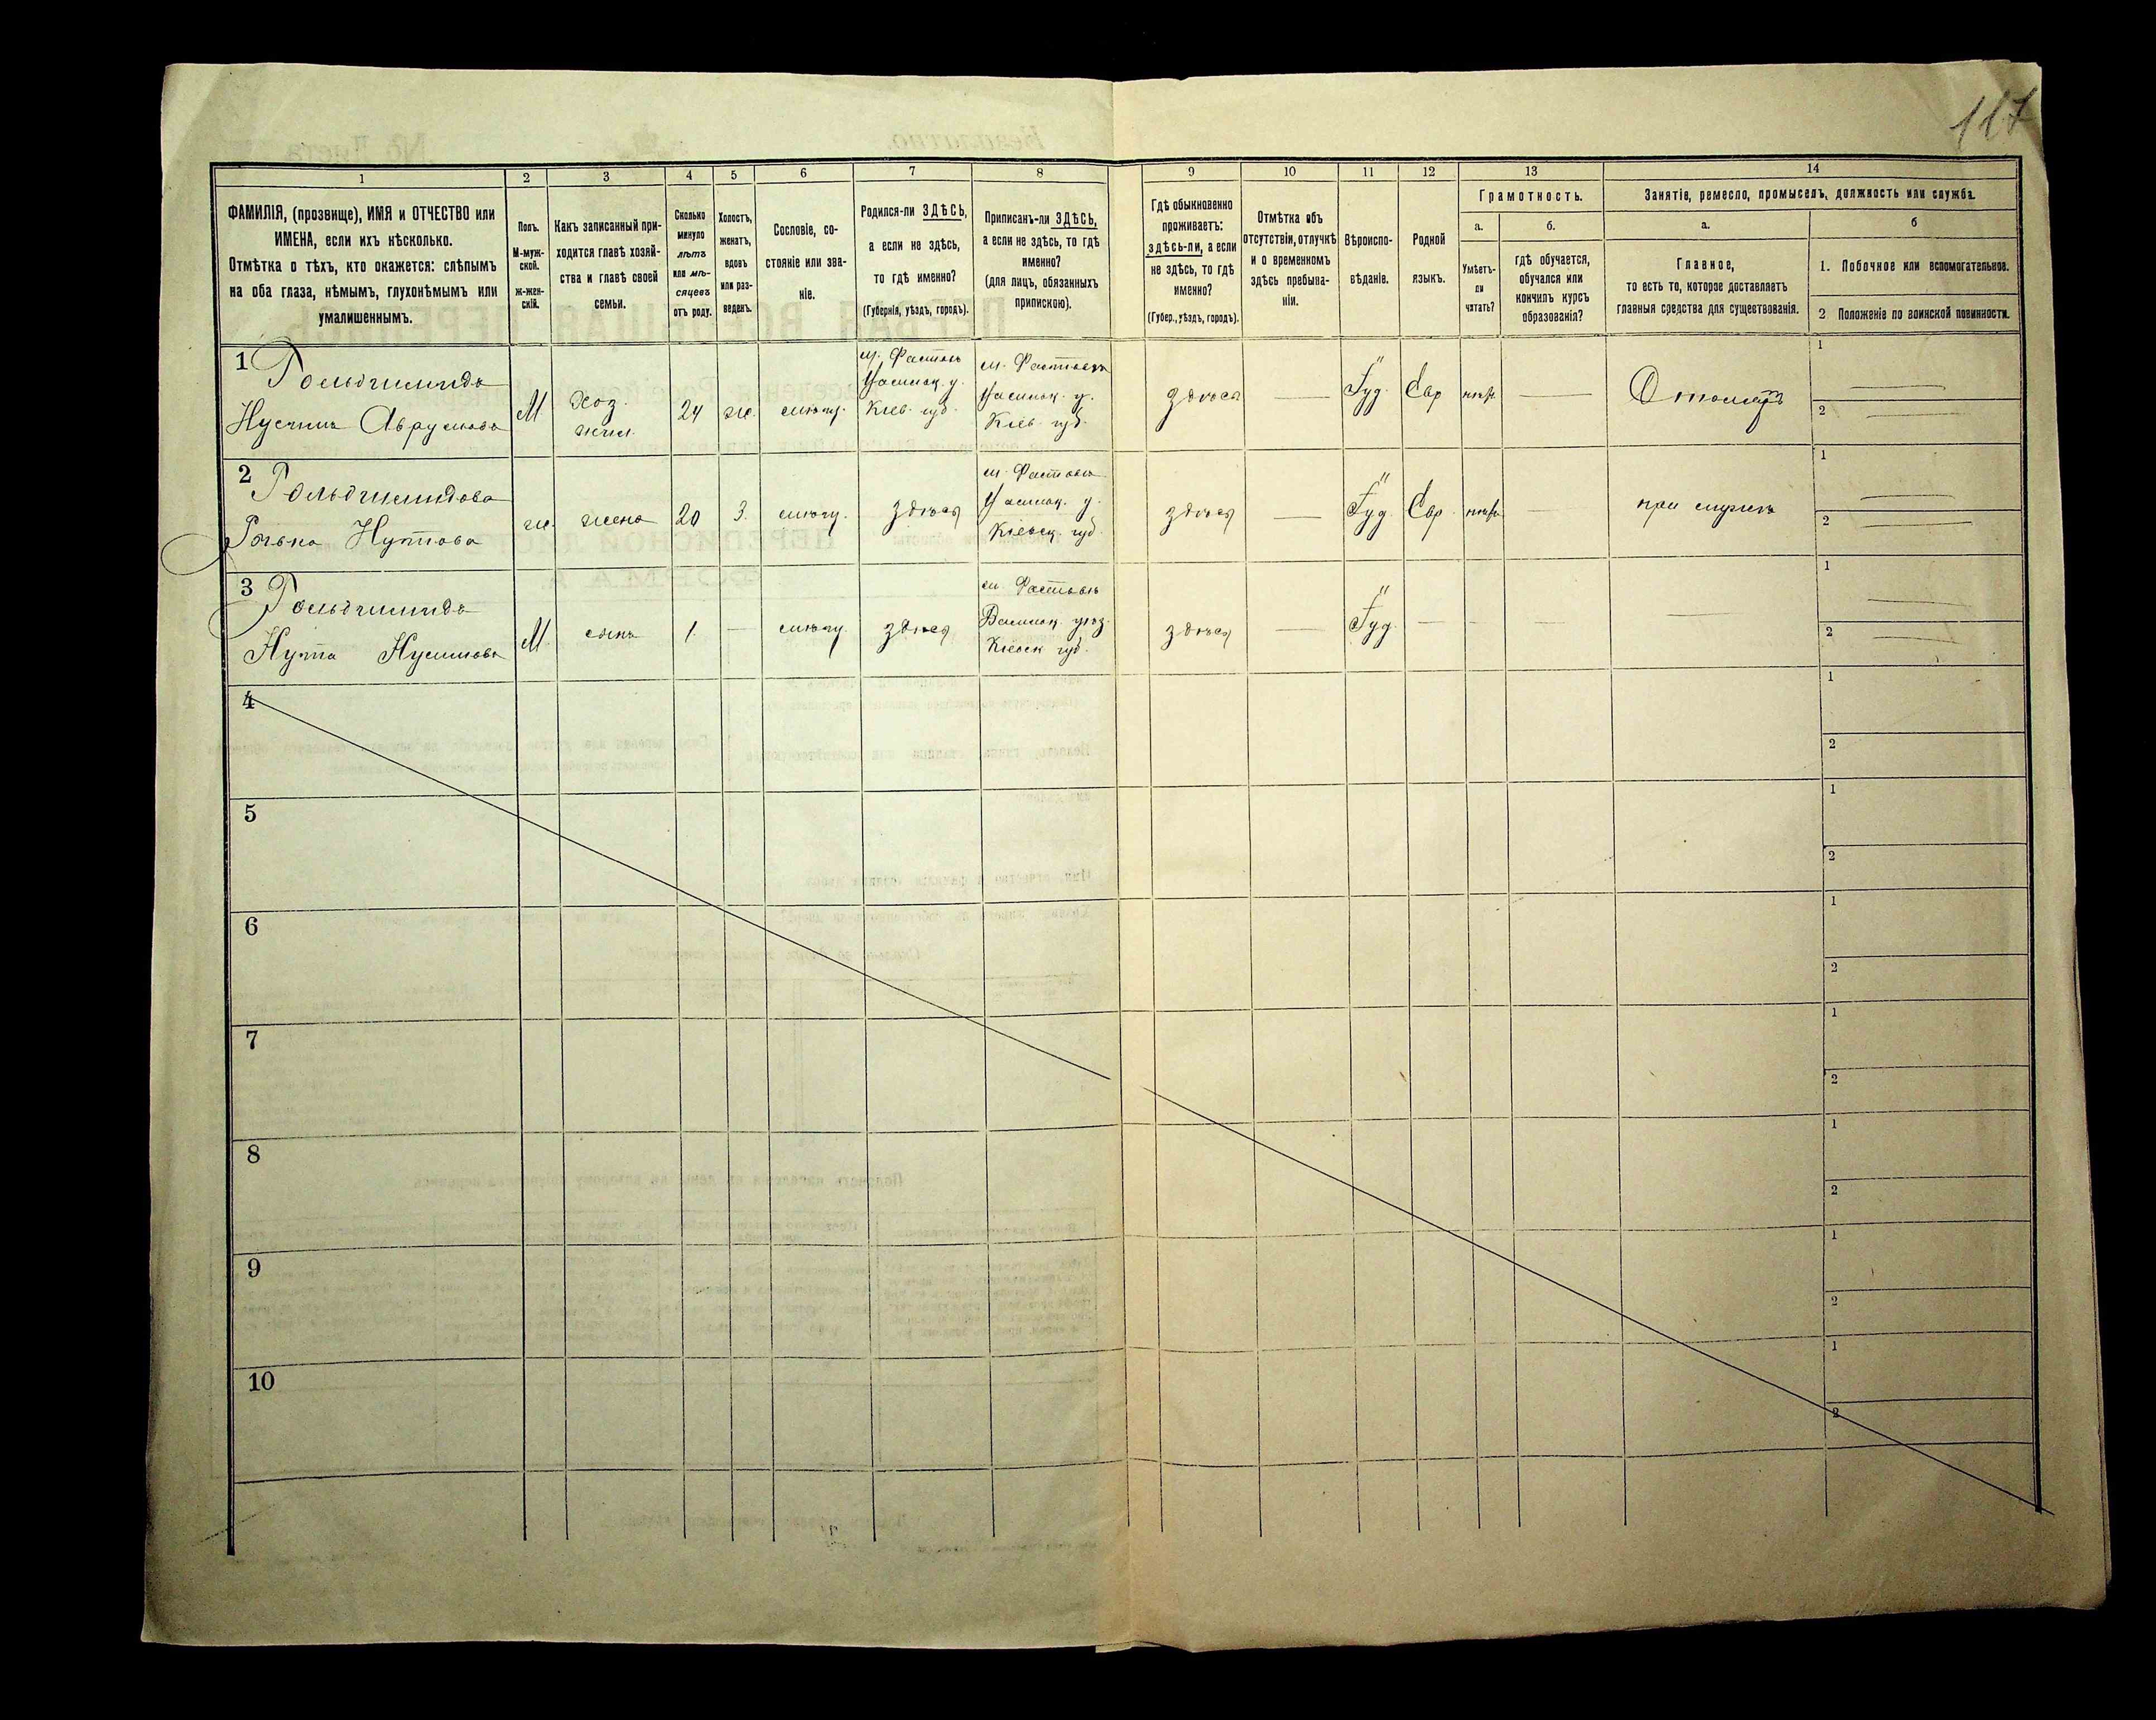 117
1
2
3
4
5
6
7
8
9
10
11
12
13
14
ФАМИЛІЯ, (прозвище), ИМЯ и ОТЧЕСТВО или
ИМЕНА, если ихъ нѣсколько.
Отмѣтка о тѣхъ, кто окажется: слѣпымъ
на оба глаза, нѣмымъ, глухонѣмымъ или
умалишеннымъ.
Полъ.
М-муж-
ской.
Ж-жен-
скій.
Какъ записанный при-
ходится главѣ хозяй-
ства и главѣ своей
семьи.
Сколько
минуло
лѣтъ
или мѣ-
сяцевъ
отъ роду.
Холостъ,
женатъ,
вдовъ
или раз-
веденъ.
Сословіе, со-
стояніе или зва-
ніе.
Родился-ли ЗДѢСЬ,
а если не здѣсь,
то гдѣ именно?
(Губернія, уѣздъ, городъ).
Приписанъ-ли ЗДѢСЬ,
а если не здѣсь, то гдѣ
именно?
(для лицъ, обязанныхъ
припискою).
Гдѣ обыкновенно
проживаетъ:
здѣсь-ли, а если
не здѣсь, то гдѣ
именно?
(Губер., уѣздъ, городъ).
Отмѣтка объ
отсутствіи, отлучкѣ
и о временномъ
здѣсь пребыва-
ніи.
Вѣроиспо-
вѣданіе.
Родной
языкъ.
Грамотность.
а.
Умѣетъ-
ли
читать?
б.
гдѣ обучается,
обучался или
кончилъ курсъ
образованія?
Занятіе, ремесло, промыселъ, должность или служба.
а.
Главное,
то есть то, которое доставляетъ
главныя средства для существованія.
б
1. Побочное или вспомогательное.
2 Положеніе по воинской повинности.
1
Гольдшмидъ
Нусинъ Аврумовъ
М
хоз.
24
ж.
м. Фастовъ
Кіев. губ.
м. Фастовъ
Кіев. губ.
здѣсь
Іуд.
Евр
1
2
2
Гольдшмидова
Нутова
ж.
жена
20
З.
здѣсь
м. Фастовъ
Кіевск. губ.
здѣсь
Іуд
Евр.
при мужѣ
1
2
3
Гольдшмидъ
Нута Нусиновъ
М.
сынъ
1.
здѣсь
м. Фастовъ
Васильк. уѣз.
Кіевск губ.
здѣсь
Іуд.
1
2
4
1
2
5
1
2
6
1
2
7
1
2
8
1
2
9
1
2
10
1
2